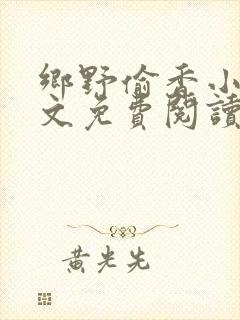 鄉野偷香小
文免費閱讀
黃光先